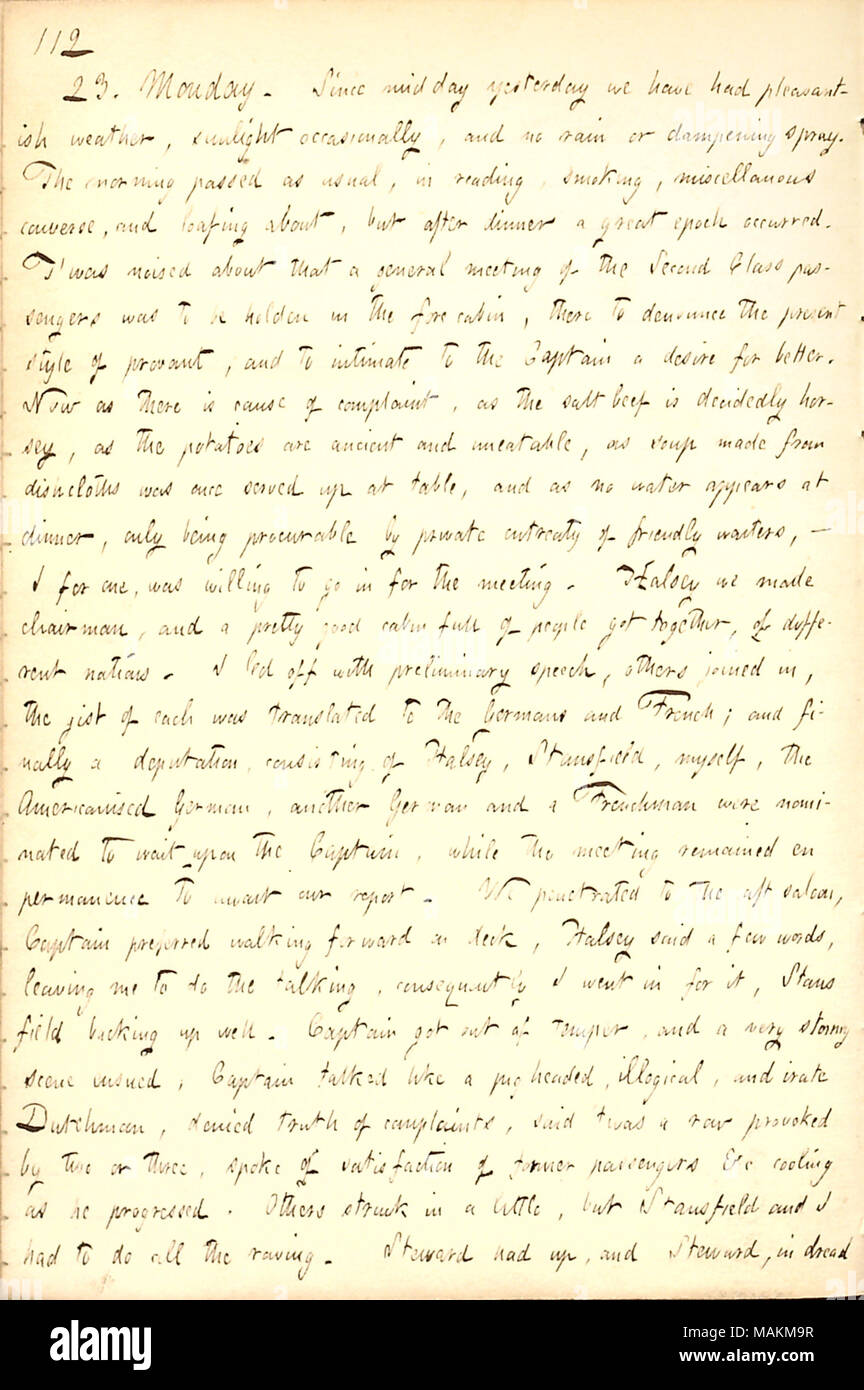 112
23. Monday. Since midday yesterday we have had pleasant-
ish weather, sunlight occasionally, and no rain or dampening spray.
The morning passed as usual, in reading, smoking, miscellanous
converse, and loafing about, but after dinner a great epoch occurred.
T'was noised about that a general meeting of the Second Class pas-
sengers was to be holden in the fore cabin, there to denounce the present
style of provant, and to intimate to the Captain a desire for better.
Now as there is cause of complaint, as the salt beef is decidedly hor-
sey, as the potatoes are ancient and uneatable, as soup made from
dishcloths was once served up at table, and as no water appears at
dinner, only being procurable by private entreaty of friendly waiters, —
I for one, was willing to go in for the meeting. Halsey we made
chairman, and a pretty good cabin full of people got together, of diffe-
rent nations. I led off with preliminary speech, others joined in,
the gist of each was translated to the Germans and French; and fi-
nally a deputation, consisting of Halsey, Stansfield, myself, the
Americanised German, another German and a Frenchman were nomi-
nated to wait upon the Captain, while the meeting remained en
permanence to await our report. We penetrated to the aft saloon,
Captain preferred walking forward on deck, Halsey said a few words,
leaving me to do the talking, consequently I went in for it, Stans
field backing up well. Captain got out of temper, and a very stormy
scene ensued; Captain talked like a pig headed, illogical, and irate
Dutchman, denied truth of complaints, said twas a row provoked
by two or three, spoke of satisfaction of former passengers &c cooling
as he progressed. Others struck in a little, but Stansfield and I
had to do all the rowing. Steward had up, and Steward, in dread
alamy
Image ID: MAKM9R
www.alamy.com